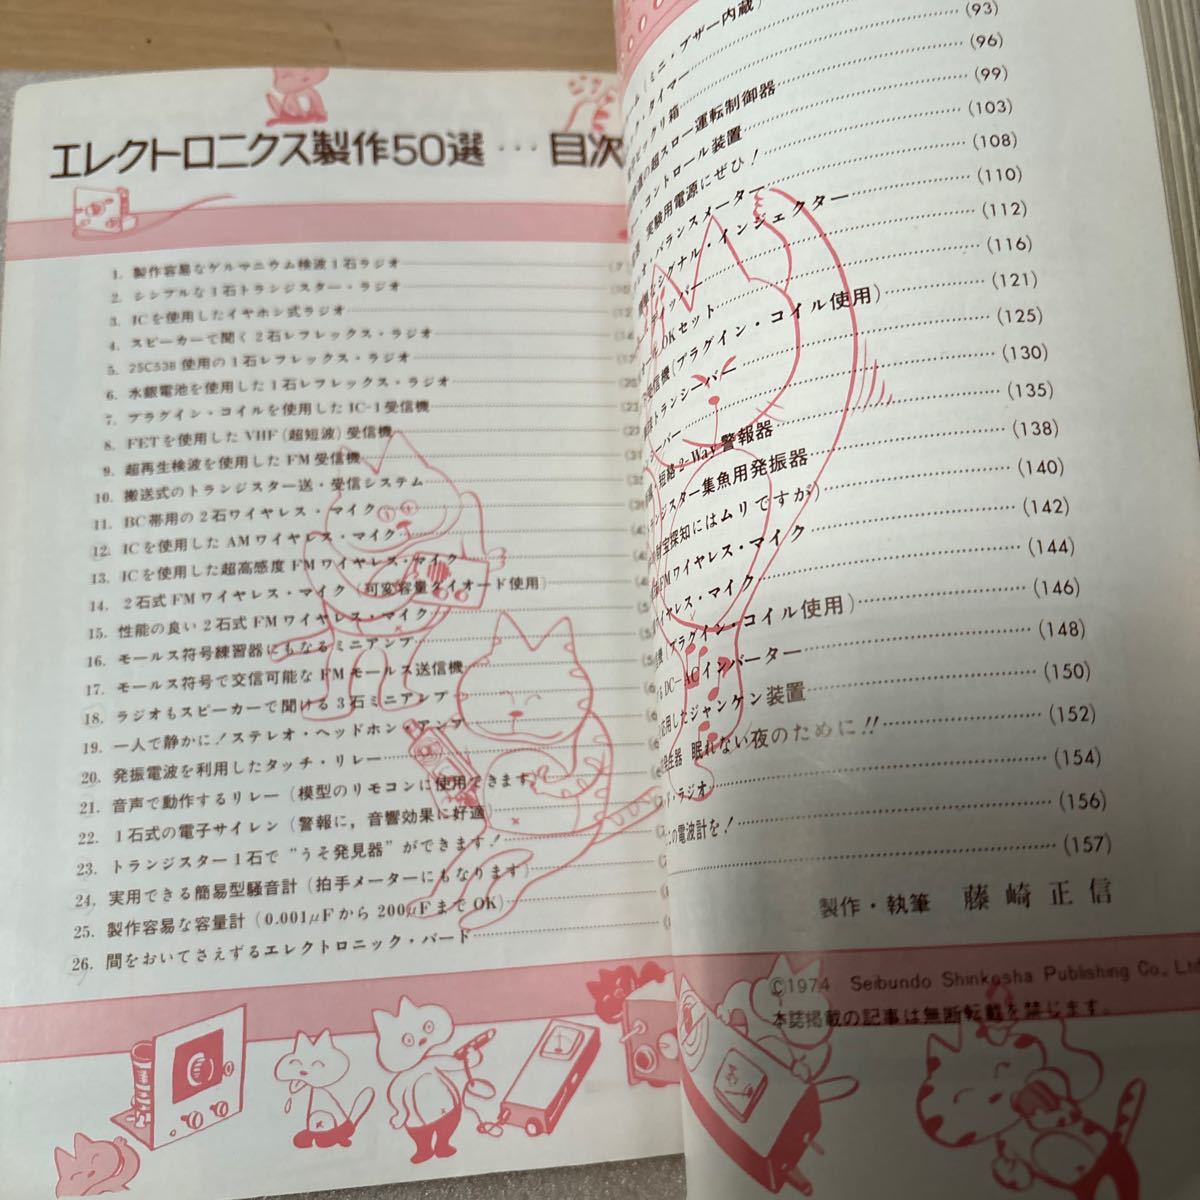 エレクトロニクス製作50選…目次
1. 製作容易なゲルマニウム検波1石ラジオ
2. シンプルな1石トランジスター・ラジオ
3. ICを使用したイヤホン式ラジオ
4. スピーカーで聞く2石レフレックス・ラジオ
5. 2SC538使用の1石レフレックス・ラジオ
6. 水銀電池を使用した1石レフレックス・ラジオ
7. プラグイン・コイルを使用したIC-1受信機
8. FETを使用したVHF(超短波)受信機
9. 超再生検波を使用したFM受信機
10. 搬送式のトランジスター送・受信システム
11. BC帯用の2石ワイヤレス・マイク
12. ICを使用したAMワイヤレス・マイク
13. ICを使用した超高感度FMワイヤレス・マイク
14. 2石式FMワイヤレス・マイク(可変容量ダイオード使用)
15. 性能の良い2石式FMワイヤレス・マイク
16. モールス符号練習器にもなるミニアンプ
17. モールス符号で交信可能なFMモールス送信機
18. ラジオもスピーカーで聞ける3石ミニアンプ
19. 一人で静かに!ステレオ・ヘッドホン・アンプ
20. 発振電波を利用したタッチ・リレー
21. 音声で動作するリレー(模型のリモコンに使用できます)
22. 1石式の電子サイレン(警報に,音響効果に好適)
23. トランジスター1石で“うそ発見器”ができます!
24. 実用できる簡易型騒音計(拍手メーターにもなります)
25. 製作容易な容量計(0.001μFから200μFまでOK)
26. 間をおいてさえずるエレクトロニック・バード
ミニ・ブザー内蔵) (93)
タイマー (96)
ックリ箱 (99)
の超スロー運転制御器 (103)
コントロール装置 (108)
実験用電源にぜひ! (110)
バランスメーター (112)
シグナル・インジェクター (116)
ディッパー (121)
OKセット (125)
受信機(プラグイン・コイル使用) (130)
トランシーバー (135)
シーバー (138)
短絡2-Way警報器 (140)
ジスター集魚用発振器 (142)
宝探知にはムリですが) (144)
FMワイヤレス・マイク (146)
イヤレス・マイク (148)
機(プラグイン・コイル使用) (150)
DC-ACインバーター (152)
応用したジャンケン装置 (154)
発生器 眠れない夜のために!! (156)
ラジオ (157)
この電波計を!
製作・執筆 藤崎正信
©1974 Seibundo Shinkosha Publishing Co., Ltd
本誌掲載の記事は無断転載を禁じます。